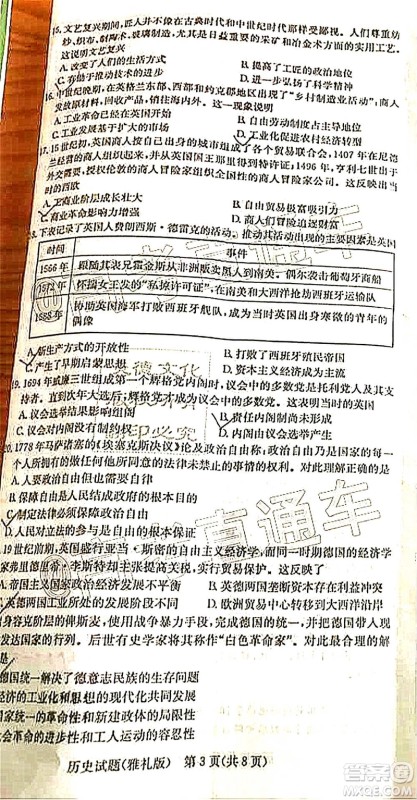 15.文艺复兴期间,匠人并不像在古典时代和中世纪时代那样受鄙视。人们尊重纺
纱、织布、制陶术、玻璃制造术,尤其是日益重要的采矿和冶金术方面的实用工艺。
这说明文艺复兴
A.改变了人们的生活方式
B.提高了工匠的政治地位
C.有助于推动生产技术进步
D.弘扬了科学精神
16.中世纪后期,在英格兰东部、西部和约克郡地区出现了“乡村制造业活动”,商人
控制。这一现象说明
A.工业革命已经开始
B.自由劳动制度占主导地位
C.商业资本发展与扩大
D.工业化促进农村经济转型
17.15世纪初,英国商人商人以自身的城市组成了各个贸易联合会,1407年在尼德
兰经营的商人组织起来,并从英国国王那里得到特许;1496年,亨利七世出于对
外交涉需要,将英国商人家组织成全国性的商人冒险家公司。这反映出当时
的西欧
A.工商业阶层成长壮大
B.自由贸易极富吸引力
C.商业革命影响力增强
D.商人们冒险意识增强
18.下表记录了英国人费朗西斯·德雷克的活动。推动其活动出现的主要因素是英国
时间 事件
1566年 跟随其表兄霍金斯从非洲贩卖黑人到南美,偶尔袭击葡萄牙商船
1572年 怀揣女王发的“私掠许可证”,在南美和大西洋抢劫西班牙运输队
1588年 协助英国海军打败西班牙舰队,成为当时英国出身寒微的青年的
偶像
A.新生产方式的开放性
B.打败了西班牙殖民帝国
C.产生了早期启蒙思想
D.资本主义经济成为主流
19.1694年威廉三世组成第一个辉格党内阁时,议会中的多数党是托利党人,
直到次年大选后,辉格党才成为议会中的多数党。这表明当时的英国
A.议会选举产生内阁
B.责任内阁制尚未形成
C.国王统而不治
D.内阁由议会选举产生
20.1778年马萨诸塞《埃塞克斯决议》论及政治自由称:政治自由是国家中的每一
个人所拥有的做任何他所同意的法律未禁止之事情的权利。对此理解正确的是
A.
B.保障自由是人民建立政府的根本目的
C.保障政治自由是政府的根本目的
D.人民对立法的参与是自由的根本
19世纪前期,英国盛行亚当·斯密的自由主义经济学,而同时代的德国的经济
学家弗里德里希·李斯特却主张提高关税,实施贸易保护。这反映了
A.帝国主义国家政治经济发展不平衡
B.英德两国垄断资本存在利益冲突
C.英德两国工业所处的发展阶段不同
D.欧洲贸易中心转移到大西洋沿岸
身容克阶层的俾斯麦,使用战争暴力手段,完成德国的统一,并把德国带入现
发达国家的行列。后世有史学家将其称作“白色革命家”。对此最合理的解
是
德国统一解决了德意志民族的生存问题
经济的工业化和思想的现代化共同发展
统一的革命性和容克政体的局限性
的革命性和工人、农民的保守性
历史试题(雅礼版) 第3页(共8页)